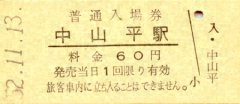 52.11.13.
普通入場券
中山平駅
料金 60円
発売当日1回限り有効
旅客車内に立ち入ることはできません。
入・中山平
小